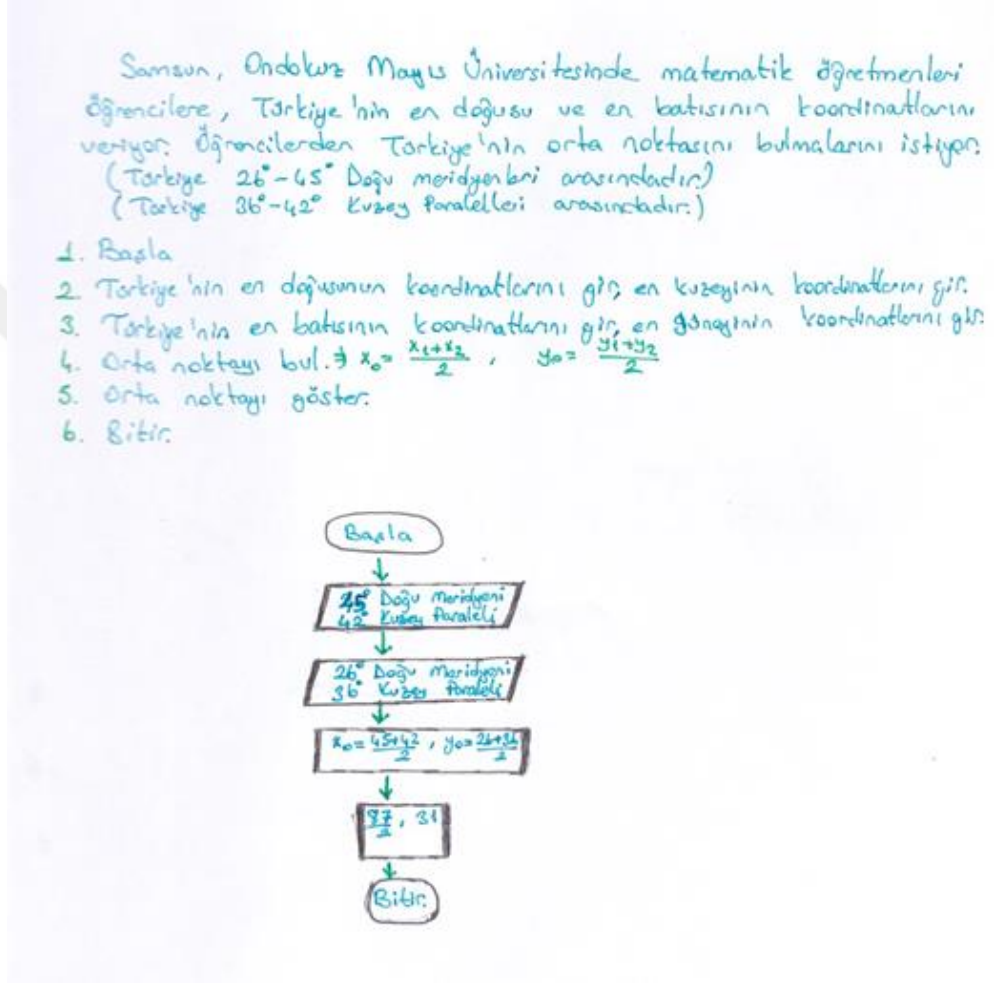 Samsun, Ondokuz Mayıs Üniversitesinde matematik öğretmenleri
öğrencilere, Türkiye'nin en doğusu ve en batısının koordinatlarını
veriyor. Öğrencilerden Türkiye'nin orta noktasını bulmalarını istiyor.
(Türkiye 26°-45° Doğu meridyenleri arasındadır.)
(Türkiye 36°-42° Kuzey Paralelleri arasındadır.)
1. Başla
2. Türkiye'nin en doğusunun koordinatlarını gir, en kuzeyinin koordinatlarını gir.
3. Türkiye'nin en batısının koordinatlarını gir, en güneyinin koordinatlarını gir.
4. Orta noktayı bul. → x₀ = (x₁+x₂)/2 , y₀ = (y₁+y₂)/2
5. Orta noktayı göster.
6. Bitir.
Başla
45° Doğu Meridyeni
42° Kuzey Paraleli
26° Doğu Meridyeni
36° Kuzey Paraleli
x₀ = (45+42)/2 , y₀ = (26+36)/2
87/2 , 31
Bitir.